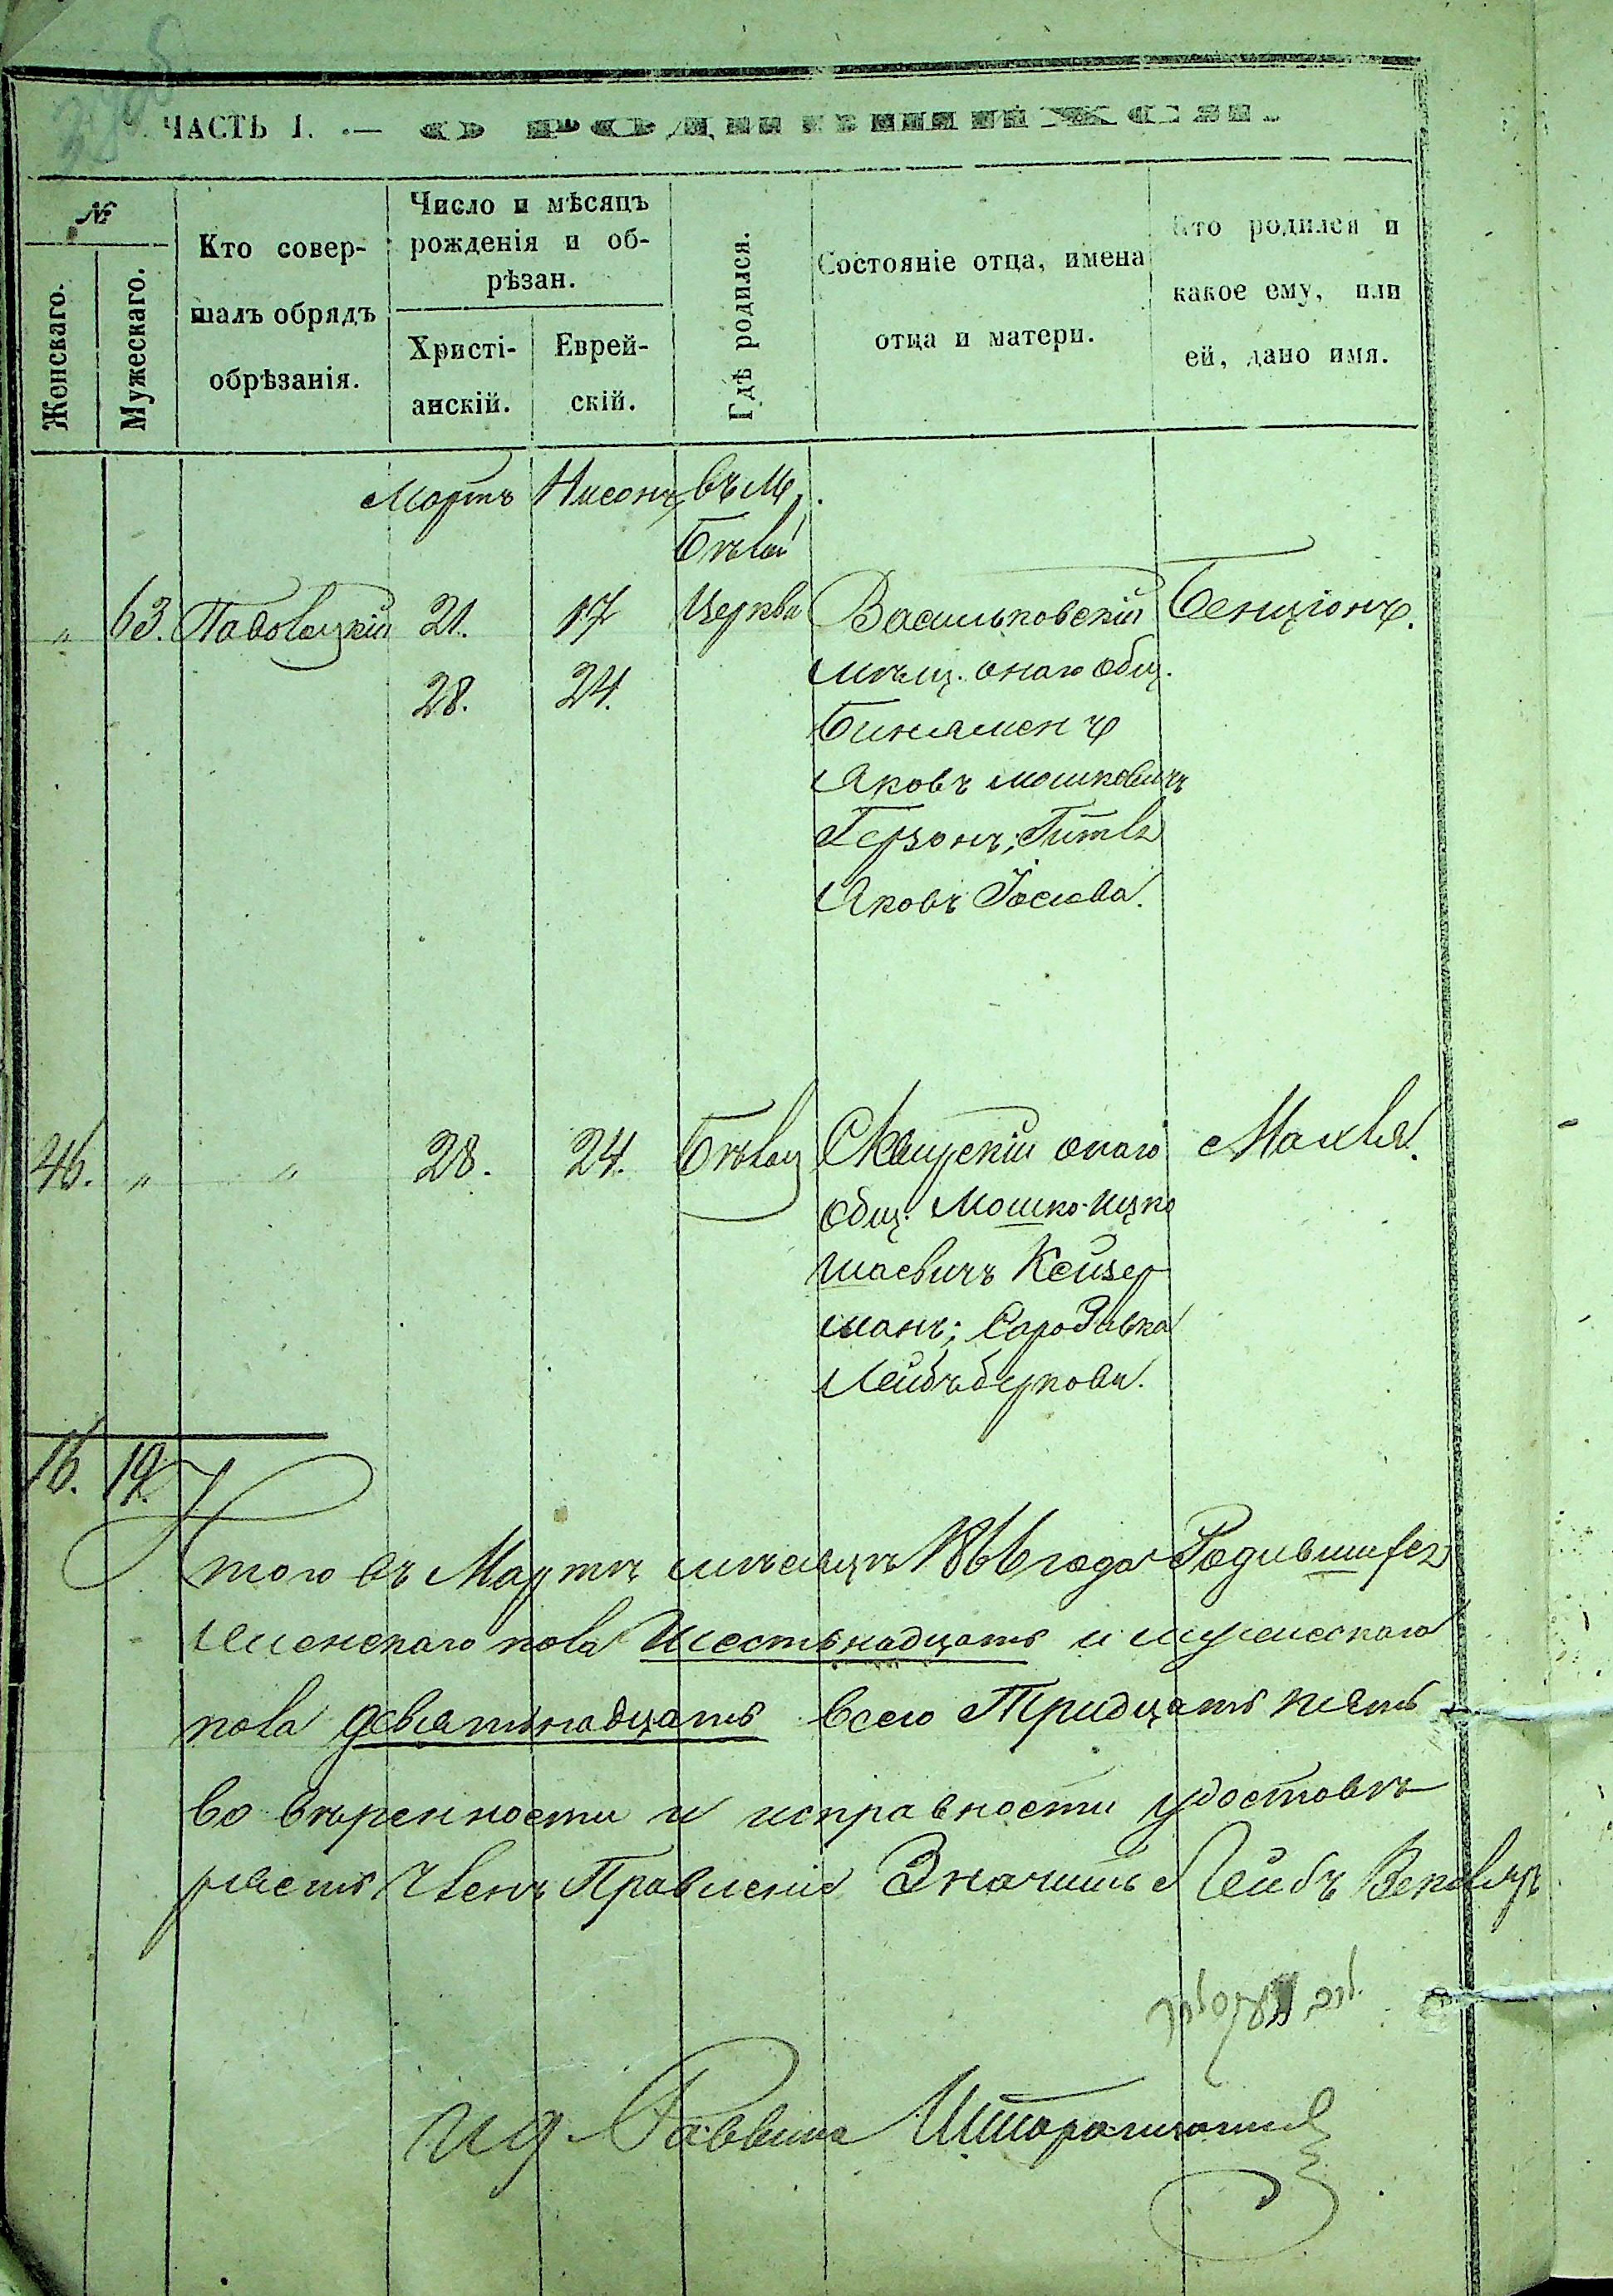 ЧАСТЬ I. — О РОДИВШИХСЯ.
№
Женскаго.
Мужескаго.
Кто совер-
шалъ обрядъ
обрѣзанія.
Число и мѣсяцъ
рожденія и об-
рѣзан.
Христі-
анскій.
Еврей-
скій.
Гдѣ родился.
Состояніе отца, имена
отца и матери.
Кто родился и
какое ему, или
ей, дано имя.
Мартъ Нисонъ въ м.
Бѣлой
„ 63. Паволоцкій 21. 17 Церкви Васильковскій Бенціонъ.
28. 24. мѣщ. онаго общ.
Биняменъ
Яковъ Мошковичъ
Герзонъ; Гитля
Яковъ Іосіова.
46. „ „ 28. 24. Бѣлоц Сквирскій онаго Махля.
общ. Мошко-Ицко
Шаевичъ Кейзер
манъ; Саро Ривка
Лейбъ беркова.
16. 19.
Итого въ Мартѣ мѣсяцѣ 1866 года Родившися
женскаго пола Шестьнадцать и мужескаго
пола девятьнадцать всего Тридцать пять
во вѣренности и исправности удостовѣ
ряетъ Членъ Правленія Значитъ Лейбъ
И Д. Раввина